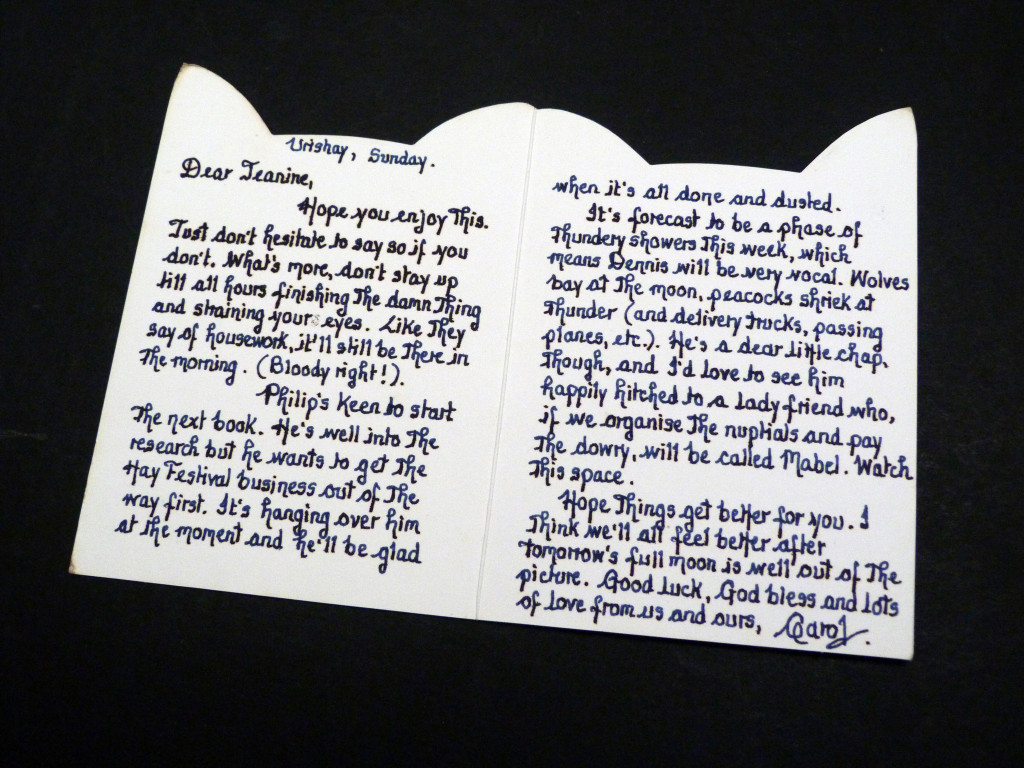 Urishay, Sunday.
Dear Jeanine,
Hope you enjoy This.
Just don't hesitate to say so if you
don't. What's more, don't stay up
till all hours finishing The damn Thing
and straining your eyes. Like They
say of housework, it'll still be There in
The morning. (Bloody right!).
Philip's Keen to start
The next book. He's well into The
research but he wants to get The
Hay Festival business out of The
way first. It's hanging over him
at The moment and he'll be glad
when it's all done and dusted.
It's forecast to be a phase of
Thundery showers This week, which
means Dennis will be very vocal. Wolves
bay at The moon, peacocks shriek at
Thunder (and delivery Trucks, passing
planes, etc.). He's a dear little chap,
Though, and I'd love to see him
happily hitched to a lady friend who,
if we organise The nuptials and pay
The dowry, will be called Mabel. Watch
This space.
Hope Things get better for you. I
Think we'll all feel better after
tomorrow's full moon is well out of The
picture. Good Luck, God bless and lots
of love from us and ours, Carol.